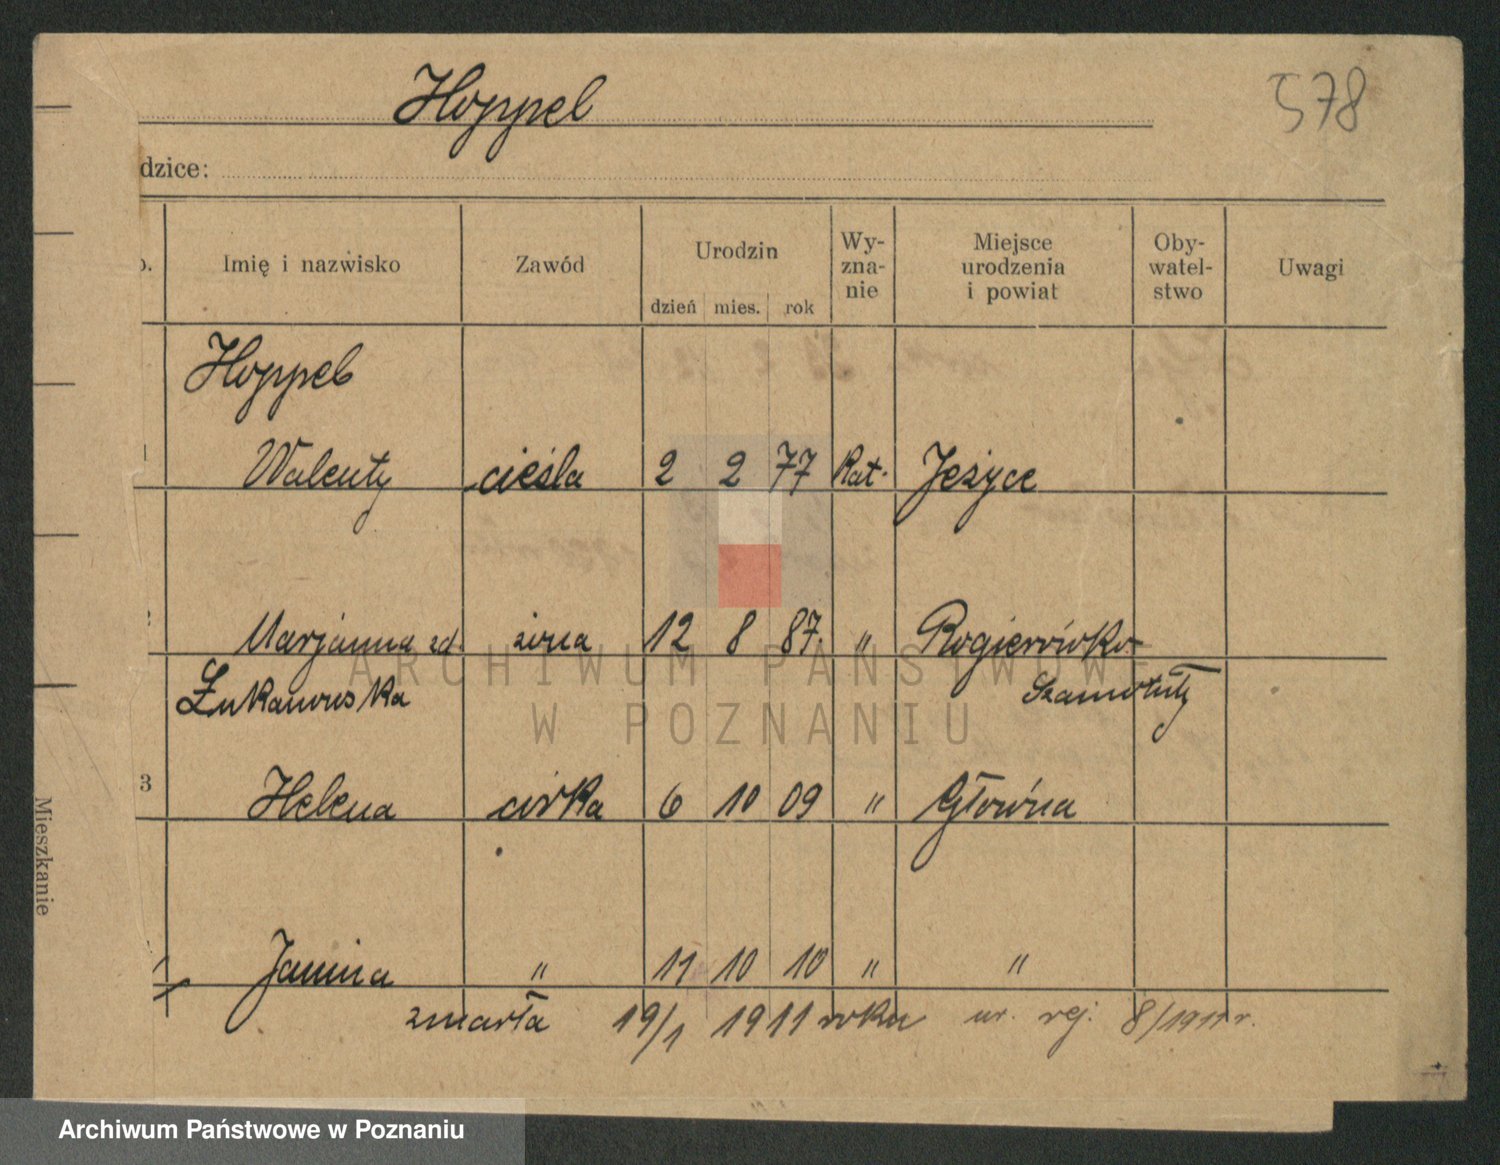 Hoppel
578
dzice:
Imię i nazwisko Zawód Urodzin dzień mies. rok Wy-zna-nie Miejsce urodzenia i powiat Oby-watel-stwo Uwagi
Hoppel
1 Walenty cieśla 2 2 77 Kat. Jeżyce
Marjanna zd. żona 12 8 87. " Rogierówko
Łukanowska Szamotuły
3 Helena córka 6 10 09 " Główna
Janina " 11 10 10 " "
zmarła 19/1 1911 roku nr. rej: 8/1911 r.
Mieszkanie
ARCHIWUM PAŃSTWOWE
W POZNANIU
Archiwum Państwowe w Poznaniu